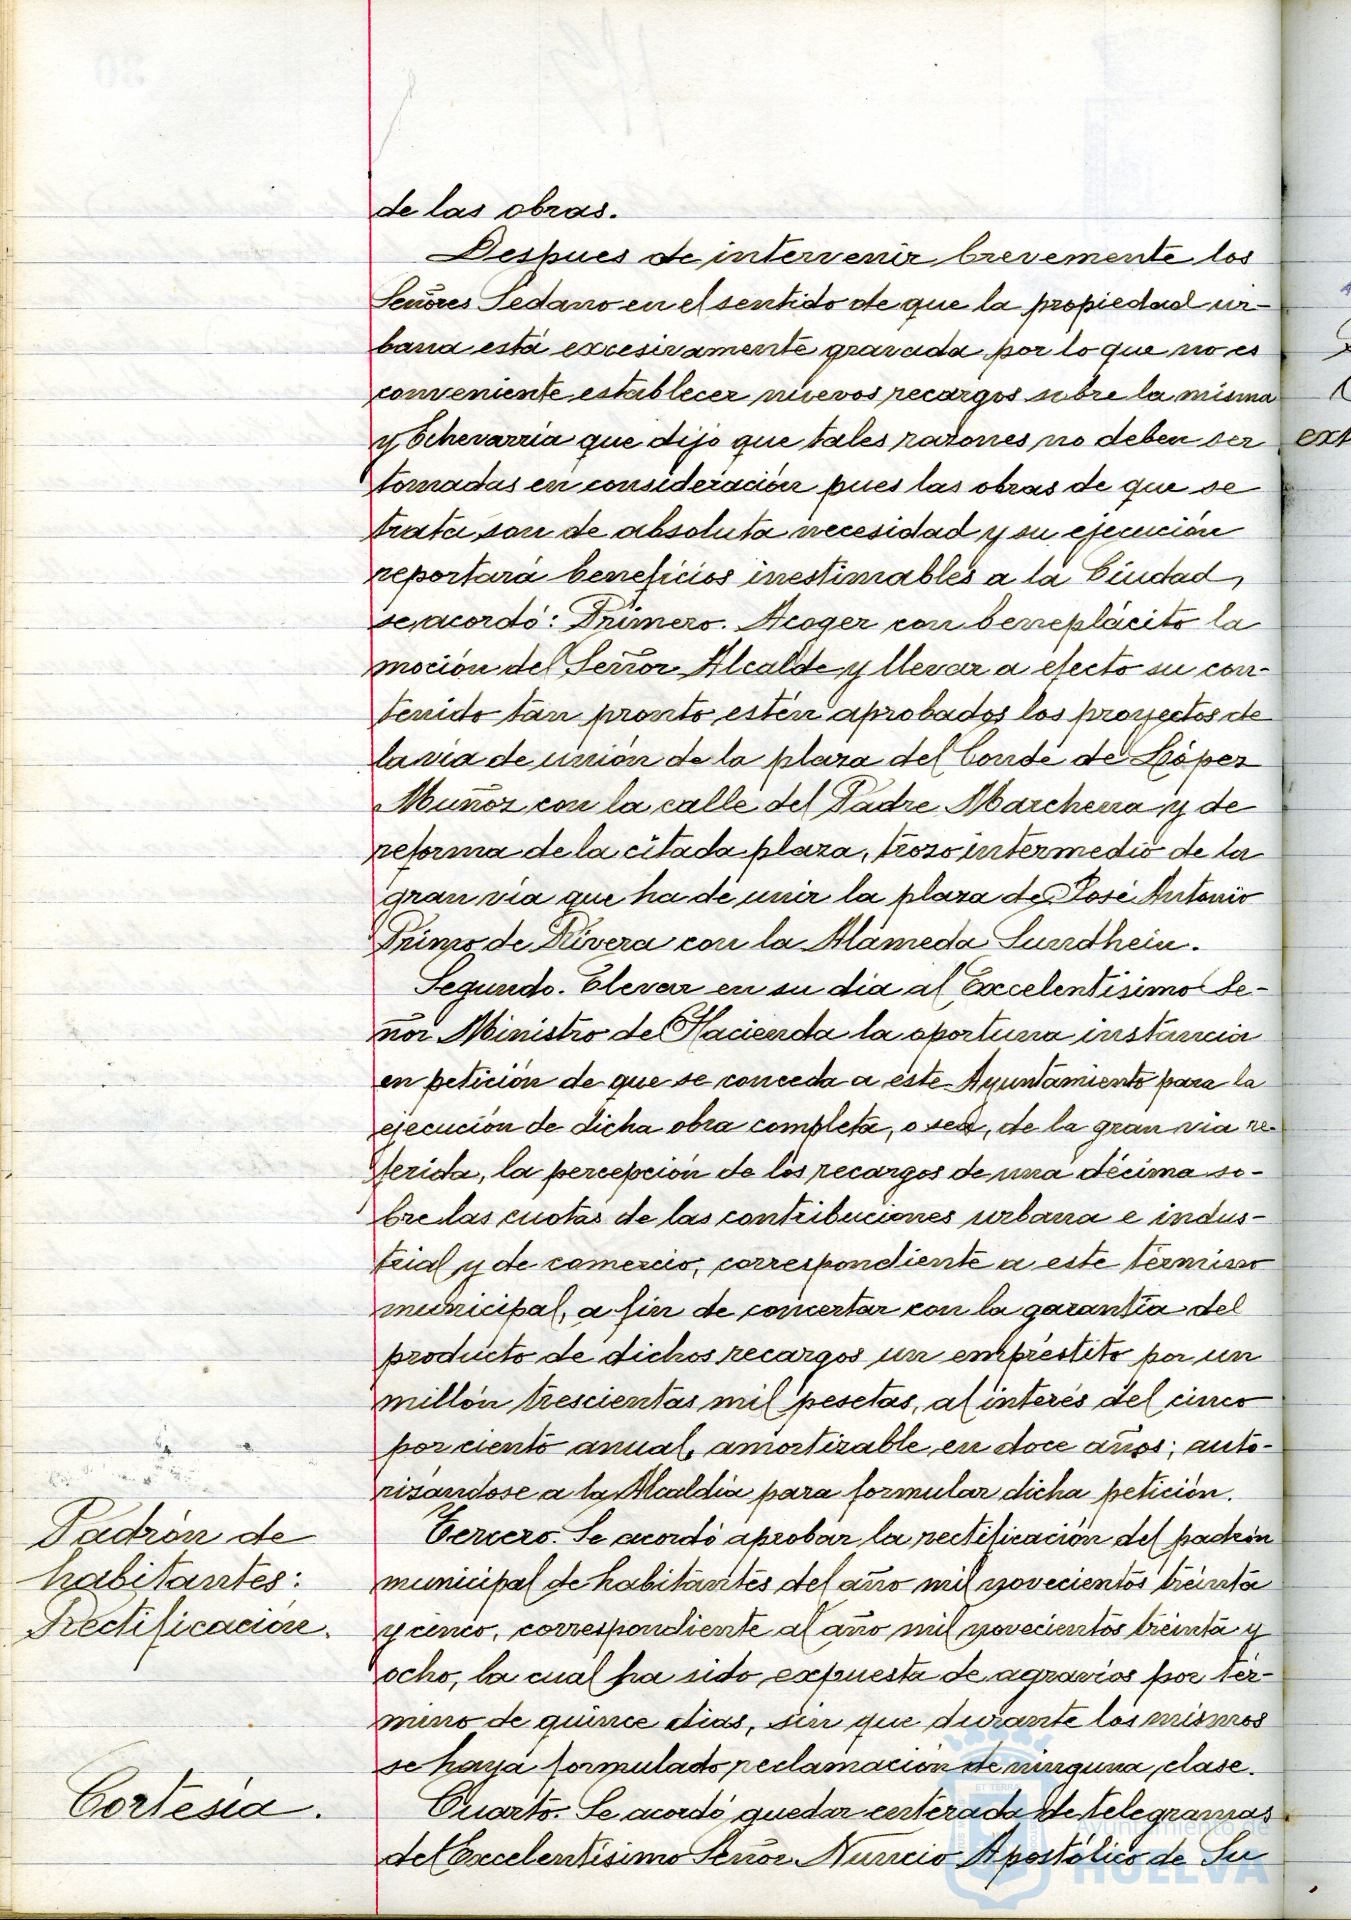 de las obras.
Despues de intervenir brevemente los
Señores Sedano en el sentido de que la propiedad ur-
bana está excesivamente gravada por lo que no es
conveniente establecer nuevos recargos sobre la misma
y Echevarría que dijo que tales razones no deben ser
tomadas en consideración pues las obras de que se
trata son de absoluta necesidad y su ejecución
reportará beneficios inestimables a la Ciudad,
se acordó: Primero. Acoger con beneplácito la
moción del Señor Alcalde y llevar a efecto su con-
tenido tan pronto estén aprobados los proyectos de
la vía de unión de la plaza del Conde de López
Muñoz con la calle del Padre Marchena y de
reforma de la citada plaza, trozo intermedio de la
gran vía que ha de unir la plaza de José Antonio
Primo de Rivera con la Alameda Sundhein.
Segundo. Elevar en su día al Excelentísimo Se-
ñor Ministro de Hacienda la oportuna instancia
en petición de que se conceda a este Ayuntamiento para la
ejecución de dicha obra completa, o sea, de la gran via re-
ferida, la percepción de los recargos de una décima so-
bre las cuotas de las contribuciones urbana e indus-
trial y de comercio, correspondiente a este término
municipal, a fin de concertar con la garantía del
producto de dichos recargos un empréstito por un
millón trescientas mil pesetas, al interés del cinco
por ciento anual, amortizable en doce años; auto-
rizándose a la Alcaldía para formular dicha petición.
Padrón de
habitantes:
Rectificación.
Tercero. Se acordó aprobar la rectificación del padrón
municipal de habitantes del año mil novecientos treinta
y cinco, correspondiente al año mil novecientos treinta y
ocho, la cual ha sido expuesta de agravios por tér-
mino de quince dias, sin que durante los mismos
se haya formulado reclamación de ninguna clase.
Cortesía.
Cuarto. Se acordó quedar enterada de telegramas
del Excelentísimo Señor Nuncio Apostólico de Su
ext
Ayuntamiento de
HUELVA